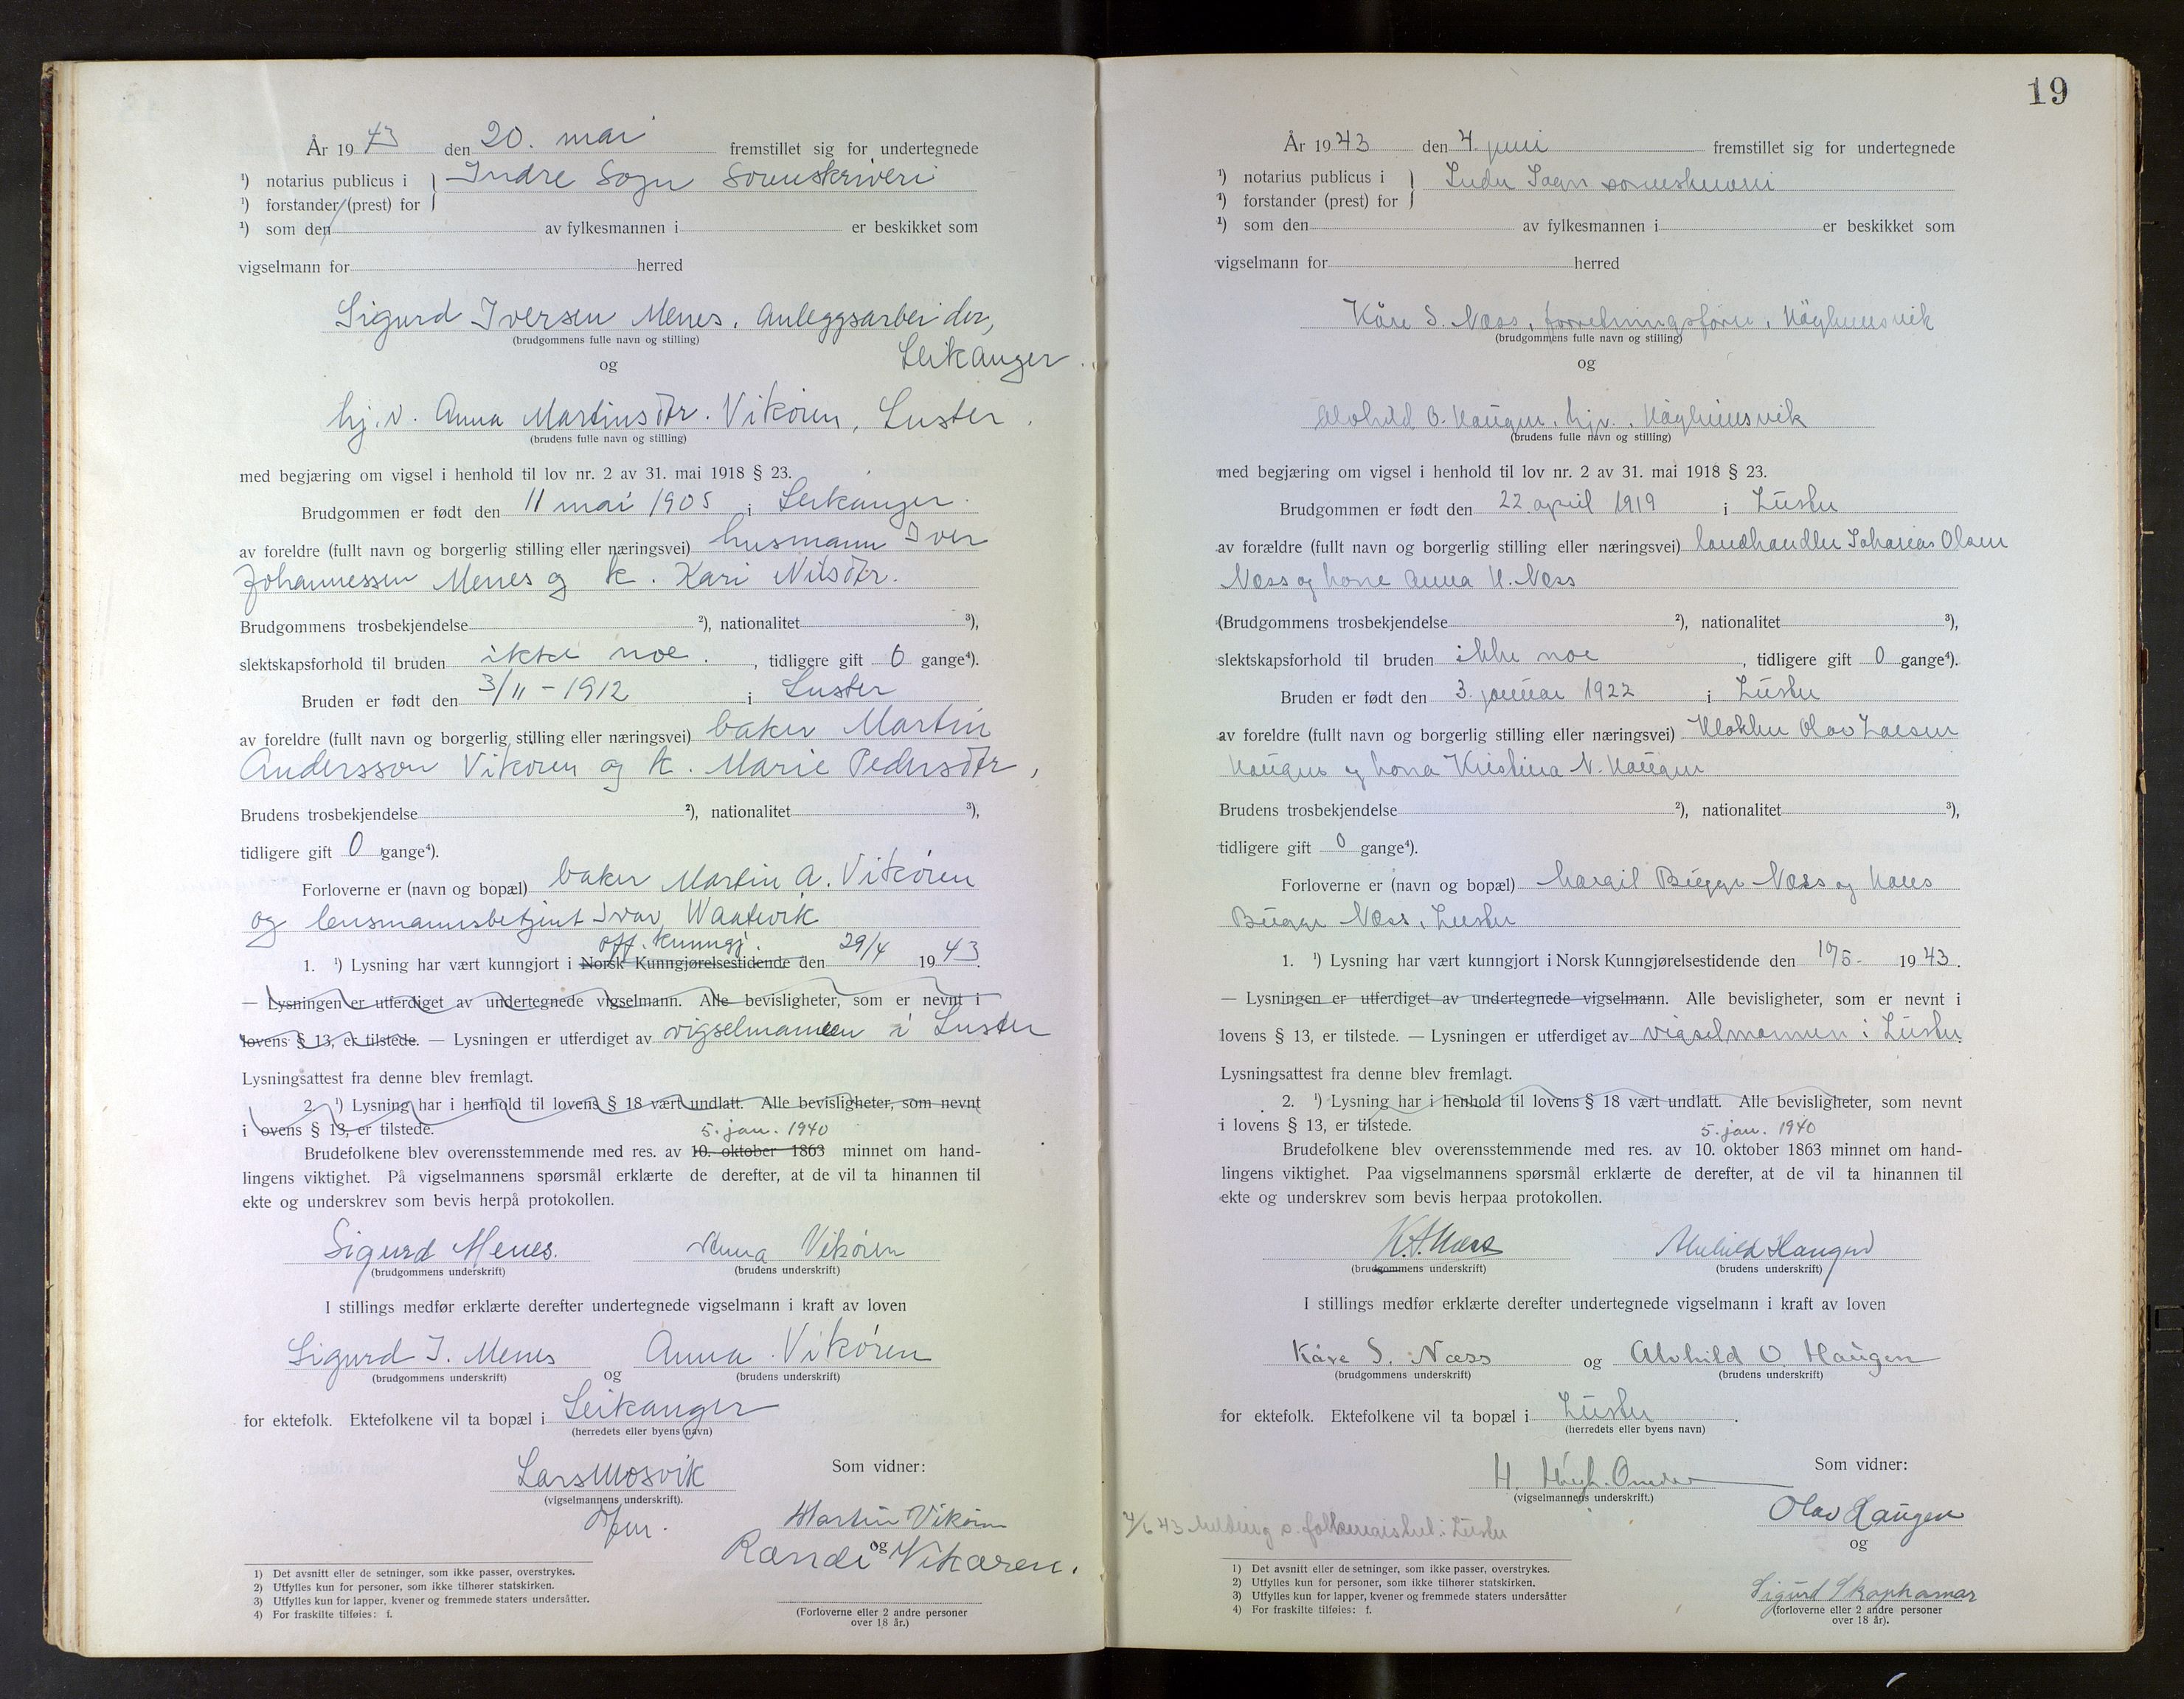 År 1943 den 20. mai fremstillet sig for undertegnede
¹) notarius publicus i Indre Sogn Sorenskriveri
¹) forstander (prest) for
¹) som den av fylkesmannen i er beskikket som
vigselmann for herred
Sigurd Iversen Menes, Anleggsarbeider,
(brudgommens fulle navn og stilling)
Leikanger.
og
hj. v. Anna Martinsdtr. Vikøren, Luster.
(brudens fulle navn og stilling)
med begjæring om vigsel i henhold til lov nr. 2 av 31. mai 1918 § 23.
Brudgommen er født den 11 mai 1905 i Leikanger.
av foreldre (fullt navn og borgerlig stilling eller næringsvei) husmann Iver
Johannessen Menes og k. Kari Nilsdtr.
Brudgommens trosbekjendelse ²), nationalitet ³),
slektskapsforhold til bruden ikke noe. , tidligere gift 0 gange⁴).
Bruden er født den 3/11 - 1912 i Luster
av foreldre (fullt navn og borgerlig stilling eller næringsvei) baker Martin
Andersson Vikøren og k. Marie Pedersdtr,
Brudens trosbekjendelse ²), nationalitet ³),
tidligere gift 0 gange⁴).
Forloverne er (navn og bopæl) baker Martin A. Vikøren
og lensmannsbetjent Ivar
off. kunngj.
1. ¹) Lysning har vært kunngjort i Norsk Kunngjørelsestidende den 29/4 1943.
— Lysningen er utferdiget av undertegnede vigselmann. Alle bevisligheter, som er nevnt i
lovens § 13, er tilstede. — Lysningen er utferdiget av vigselmannen i Luster
Lysningsattest fra denne blev fremlagt.
2. ¹) Lysning har i henhold til lovens § 18 vært undlatt. Alle bevisligheter, som nevnt
i lovens § 13, er tilstede.
5. jan. 1940
Brudefolkene blev overensstemmende med res. av 10. oktober 1863 minnet om hand-
lingens viktighet. På vigselmannens spørsmål erklærte de derefter, at de vil ta hinannen til
ekte og underskrev som bevis herpå protokollen.
Sigurd Menes. Anna Vikøren
(brudgommens underskrift) (brudens underskrift)
I stillings medfør erklærte derefter undertegnede vigselmann i kraft av loven
Sigurd I. Menes og Anna Vikøren
(brudgommens underskrift) (brudens underskrift)
for ektefolk. Ektefolkene vil ta bopæl i Leikanger
(herredets eller byens navn)
Lars Mosvik Som vidner:
(vigselmannens underskrift).
Martin Vikøren
og
Randi Vikøren.
1) Det avsnitt eller de setninger, som ikke passer, overstrykes.
2) Utfylles kun for personer, som ikke tilhører statskirken.
3) Utfylles kun for lapper, kvener og fremmede staters undersåtter.
4) For fraskilte tilføies: f.
(Forloverne eller 2 andre personer
over 18 år.)
19
År 1943 den 4 juni fremstillet sig for undertegnede
¹) notarius publicus i Indre Sogn sorenskriveri
¹) forstander (prest) for
¹) som den av fylkesmannen i er beskikket som
vigselmann for herred
Kåre S. Næss, forretningsfører,
(brudgommens fulle navn og stilling)
og
Alvhild O. Haugen, hjv.,
(brudens fulle navn og stilling)
med begjæring om vigsel i henhold til lov nr. 2 av 31. mai 1918 § 23.
Brudgommen er født den 22. april 1919 i Luster
av forældre (fullt navn og borgerlig stilling eller næringsvei) landhandler Olsen
Næss og kone Anna H. Næss
(Brudgommens trosbekjendelse ²), nationalitet ³),
slektskapsforhold til bruden ikke noe , tidligere gift 0 gange⁴).
Bruden er født den 3. januar 1922 i Luster
av foreldre (fullt navn og borgerlig stilling eller næringsvei) Klokker Olav Larsen
Haugen og kona Kristina N. Haugen
Brudens trosbekjendelse ²), nationalitet ³),
tidligere gift 0 gange⁴).
Forloverne er (navn og bopæl) Margit Bugge Næss og Hans
Bugge Næss, Luster
1. ¹) Lysning har vært kunngjort i Norsk Kunngjørelsestidende den 10/5- 1943.
— Lysningen er utferdiget av undertegnede vigselmann. Alle bevisligheter, som er nevnt i
lovens § 13, er tilstede. — Lysningen er utferdiget av vigselmannen i Luster
Lysningsattest fra denne blev fremlagt.
2. ¹) Lysning har i henhold til lovens § 18 vært undlatt. Alle bevisligheter, som nevnt
i lovens § 13, er tilstede.
5. jan. 1940
Brudefolkene blev overensstemmende med res. av 10. oktober 1863 minnet om hand-
lingens viktighet. Paa vigselmannens spørsmål erklærte de derefter, at de vil ta hinannen til
ekte og underskrev som bevis herpaa protokollen.
K.S. Næss Alvhild Haugen
(brudgommens underskrift) (brudens underskrift)
I stillings medfør erklærte derefter undertegnede vigselmann i kraft av loven
Kåre S. Næss og Alvhild O. Haugen
(brudgommens underskrift) (brudens underskrift)
for ektefolk. Ektefolkene vil ta bopæl i Luster.
(herredets eller byens navn)
Som vidner:
(vigselmannens underskrift.)
4/6 43 Melding s. folkeregistret i Luster
Olav Haugen
og
Sigurd Skaphamar
1) Det avsnitt eller de setninger, som ikke passer, overstrykes.
2) Utfylles kun for personer, som ikke tilhører statskirken.
3) Utfylles kun for lapper, kvener og fremmede staters undersåtter
4) For fraskilte tilføies: f.
(forloverne eller 2 andre personer
over 18 år).